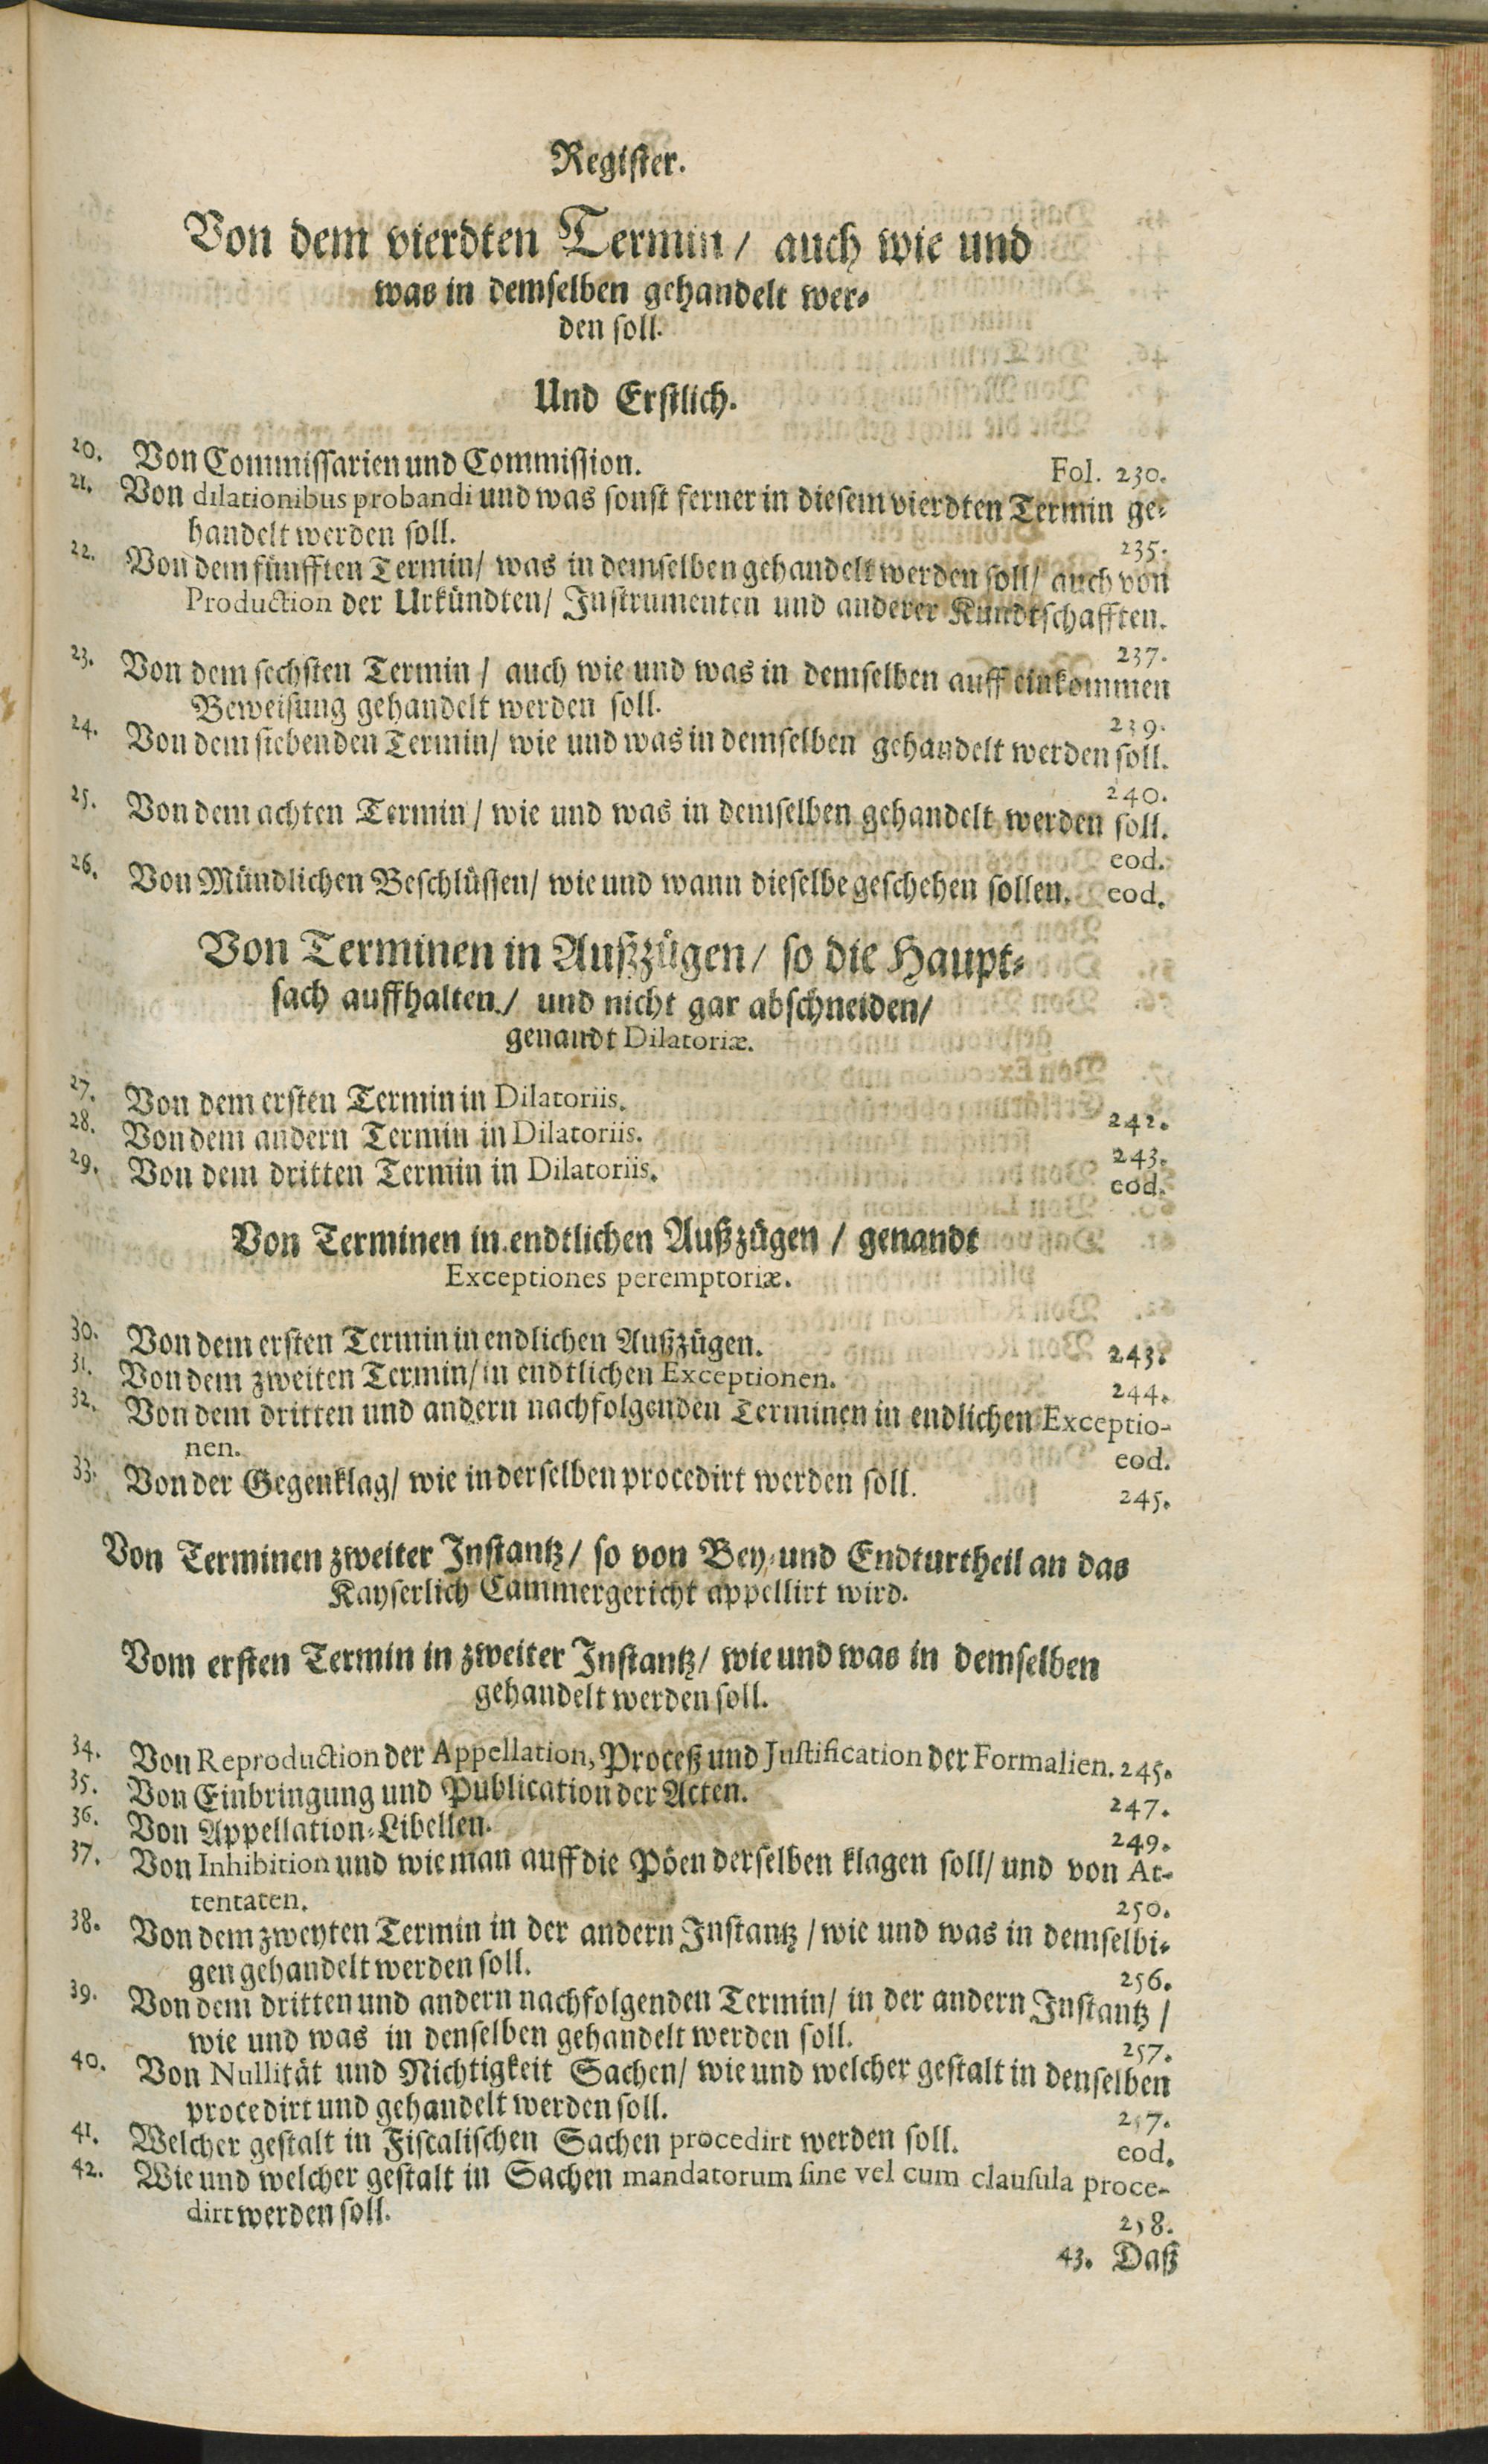 Register.
Von dem vierdten Termin / auch wie und
was in demselben gehandelt wer-
den soll.
Und Erstlich.
20. Von Commissarien und Commission. Fol. 230.
21. Von dilationibus probandi und was sonst ferner in diesem vierdten Termin ge-
handelt werden soll. 235.
22. Von dem fünfften Termin / was in demselben gehandelt werden soll / auch von
Production der Urkündten / Instrumenten und anderer Kundtschafften.
237.
23. Von dem sechsten Termin / auch wie und was in demselben auff einkommen
Beweisung gehandelt werden soll. 239.
24. Von dem siebenden Termin / wie und was in demselben gehandelt werden soll.
240.
25. Von dem achten Termin / wie und was in demselben gehandelt werden soll.
eod.
26. Von Mündlichen Beschlüssen / wie und wann dieselbe geschehen sollen. eod.
Von Terminen in Außzügen / so die Haupt-
sach auffhalten / und nicht gar abschneiden /
genandt Dilatoriæ.
27. Von dem ersten Termin in Dilatoriis. 242.
28. Von dem andern Termin in Dilatoriis. 243.
29. Von dem dritten Termin in Dilatoriis. eod.
Von Terminen in endtlichen Außzügen / genandt
Exceptiones peremptoriæ.
30. Von dem ersten Termin in endlichen Außzügen. 243.
31. Von dem zweiten Termin / in endtlichen Exceptionen. 244.
32. Von dem dritten und andern nachfolgenden Terminen in endlichen Exceptio-
nen. eod.
33. Von der Gegenklag / wie in derselben procedirt werden soll. 245.
Von Terminen zweiter Instantz / so von Bey- und Endturtheil an das
Kayserlich Cammergericht appellirt wird.
Vom ersten Termin in zweiter Instantz / wie und was in demselben
gehandelt werden soll.
34. Von Reproduction der Appellation, Proceß und Justification der Formalien. 245.
35. Von Einbringung und Publication der Acten. 247.
36. Von Appellation-Libellen. 249.
37. Von Inhibition und wie man auff die Pöen derselben klagen soll / und von At-
tentaten. 250.
38. Von dem zweyten Termin in der andern Instantz / wie und was in demselbi-
gen gehandelt werden soll. 256.
39. Von dem dritten und andern nachfolgenden Termin / in der andern Instantz /
wie und was in denselben gehandelt werden soll. 257.
40. Von Nullität und Nichtigkeit Sachen / wie und welcher gestalt in denselben
procedirt und gehandelt werden soll. 257.
41. Welcher gestalt in Fiscalischen Sachen procedirt werden soll. eod.
42. Wie und welcher gestalt in Sachen mandatorum sine vel cum clausula proce-
dirt werden soll. 258.
43. Daß